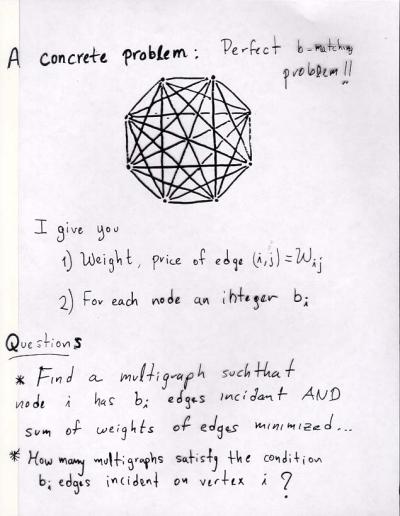 A concrete problem: Perfect b-matching
problem!!
I give you
1) Weight, price of edge (i,j) = Wij
2) For each node an integer bi
Questions
* Find a multigraph such that
node i has bi edges incident AND
sum of weights of edges minimized...
* How many multigraphs satisfy the condition
bi edges incident on vertex i ?